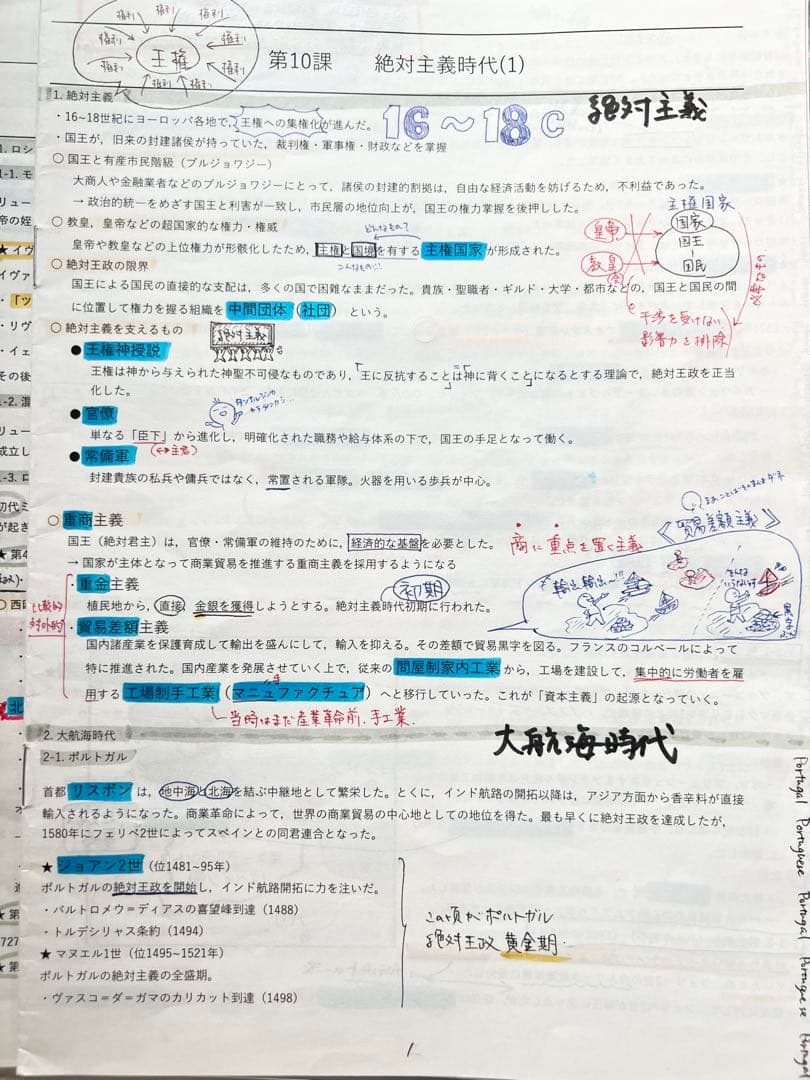 権利 権利 権利
権利 権利
権利 王権 権利
権利 権利 権利
第10課 絶対主義時代(1)
1. 絶対主義
16～18C 絶対主義
・16~18世紀にヨーロッパ各地で，王権への集権化が進んだ。
・国王が，旧来の封建諸侯が持っていた，裁判権・軍事権・財政などを掌握
○ 国王と有産市民階級（ブルジョワジー）
大商人や金融業者などのブルジョワジーにとって，諸侯の封建的割拠は，自由な経済活動を妨げるため，不利益であった。
→ 政治的統一をめざす国王と利害が一致し，市民層の地位向上が，国王の権力掌握を後押しした。
主権国家
皇帝
教皇
国家
国王
国民
干渉を受けない
影響力を排除
○ 教皇，皇帝などの超国家的な権力・権威
どんなもの？
皇帝や教皇などの上位権力が形骸化したため，主権と国境を有する主権国家が形成された。
こんなもの…
○ 絶対王政の限界
国王による国民の直接的な支配は，多くの国で困難なままだった。貴族・聖職者・ギルド・大学・都市などの，国王と国民の間
に位置して権力を握る組織を中間団体（社団）という。
○ 絶対主義を支えるもの
絶対主義
● 王権神授説
王権は神から与えられた神聖不可侵なものであり，「王に反抗することは神に背くこと」になるとする理論で，絶対王政を正当
化した。
● 官僚
単なる「臣下」から進化し，明確化された職務や給与体系の下で，国王の手足となって働く。
● 常備軍
封建貴族の私兵や傭兵ではなく，常置される軍隊。火器を用いる歩兵が中心。
○ 重商主義
国王（絶対君主）は，官僚・常備軍の維持のために，経済的な基盤を必要とした。
商に重点を置く主義
→ 国家が主体となって商業貿易を推進する重商主義を採用するようになる
《貿易差額主義》
輸出輸出～!!!
・重金主義
初期
植民地から，直接，金銀を獲得しようとする。絶対主義時代初期に行われた。
・貿易差額主義
国内諸産業を保護育成して輸出を盛んにして，輸入を抑える。その差額で貿易黒字を図る。フランスのコルベールによって
特に推進された。国内産業を発展させていく上で，従来の問屋制家内工業から，工場を建設して，集中的に労働者を雇
用する工場制手工業（マニュファクチュア）へと移行していった。これが「資本主義」の起源となっていく。
当時はまだ産業革命前，手工業．
2. 大航海時代
大航海時代
2-1. ポルトガル
首都リスボンは，地中海と北海を結ぶ中継地として繁栄した。とくに，インド航路の開拓以降は，アジア方面から香辛料が直接
輸入されるようになった。商業革命によって，世界の商業貿易の中心地としての地位を得た。最も早くに絶対王政を達成したが，
1580年にフェリペ2世によってスペインとの同君連合となった。
★ ジョアン2世（位1481~95年）
ポルトガルの絶対王政を開始し，インド航路開拓に力を注いだ。
・バルトロメウ＝ディアスの喜望峰到達（1488）
・トルデシリャス条約（1494）
★ マヌエル1世（位1495~1521年）
ポルトガルの絶対主義の全盛期。
・ヴァスコ＝ダ＝ガマのカリカット到達（1498）
この頃がポルトガル
絶対王政 黄金期．
Portugal Portuguese Portugal Portuguese Portugal
1